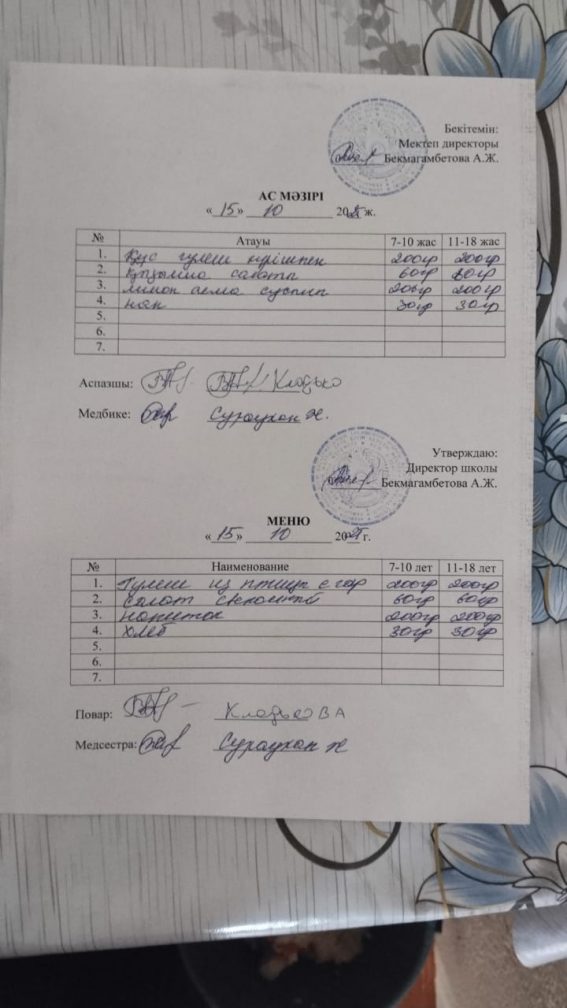 Бекітемін:
Мектеп директоры
Бекмагамбетова А.Ж.
АС МӘЗІРІ
« 15 » 10 2025 ж.
№ Атауы 7-10 жас 11-18 жас
1. Құс гуляш күрішпен 200гр 200гр
2. Қызылша салаты 60гр 60гр
3. лимон алма сусыны 200гр 200гр
4. нан 30гр 30гр
5.
6.
7.
Аспазшы: Кладько
Медбике:
Утверждаю:
Директор школы
Бекмагамбетова А.Ж.
МЕНЮ
« 15 » 10 2025 г.
№ Наименование 7-10 лет 11-18 лет
1. Гуляш из птицы с гар 200гр 200гр
2. салат свекольный 60гр 60гр
3. напиток 200гр 200гр
4. хлеб 30гр 30гр
5.
6.
7.
Повар: Кладько ВА
Медсестра: